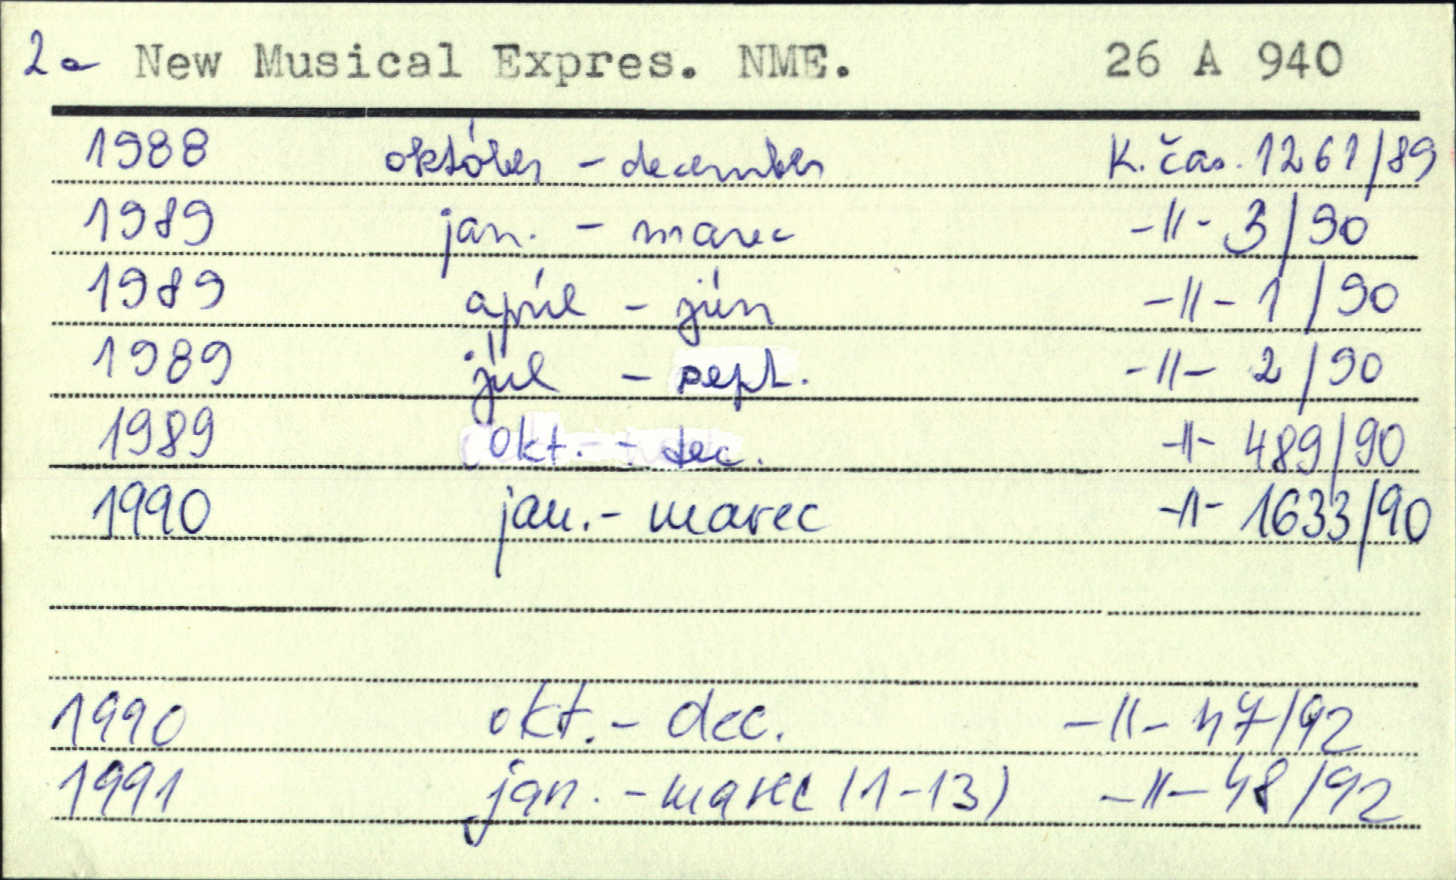 2a New Musical Expres. NME. 26 A 940
1988 október - december K. čas. 1261/89
1989 jan. - marec -11- 3/90
1989 apríl - jún -11- 1/90
1989 júl - sept. -11- 2/90
1989 okt. - dec. -11- 489/90
1990 jan. - marec -11- 1633/90
1990 okt. - dec. -11- 47/92
1991 jan. - marec (1-13) -11- 48/92